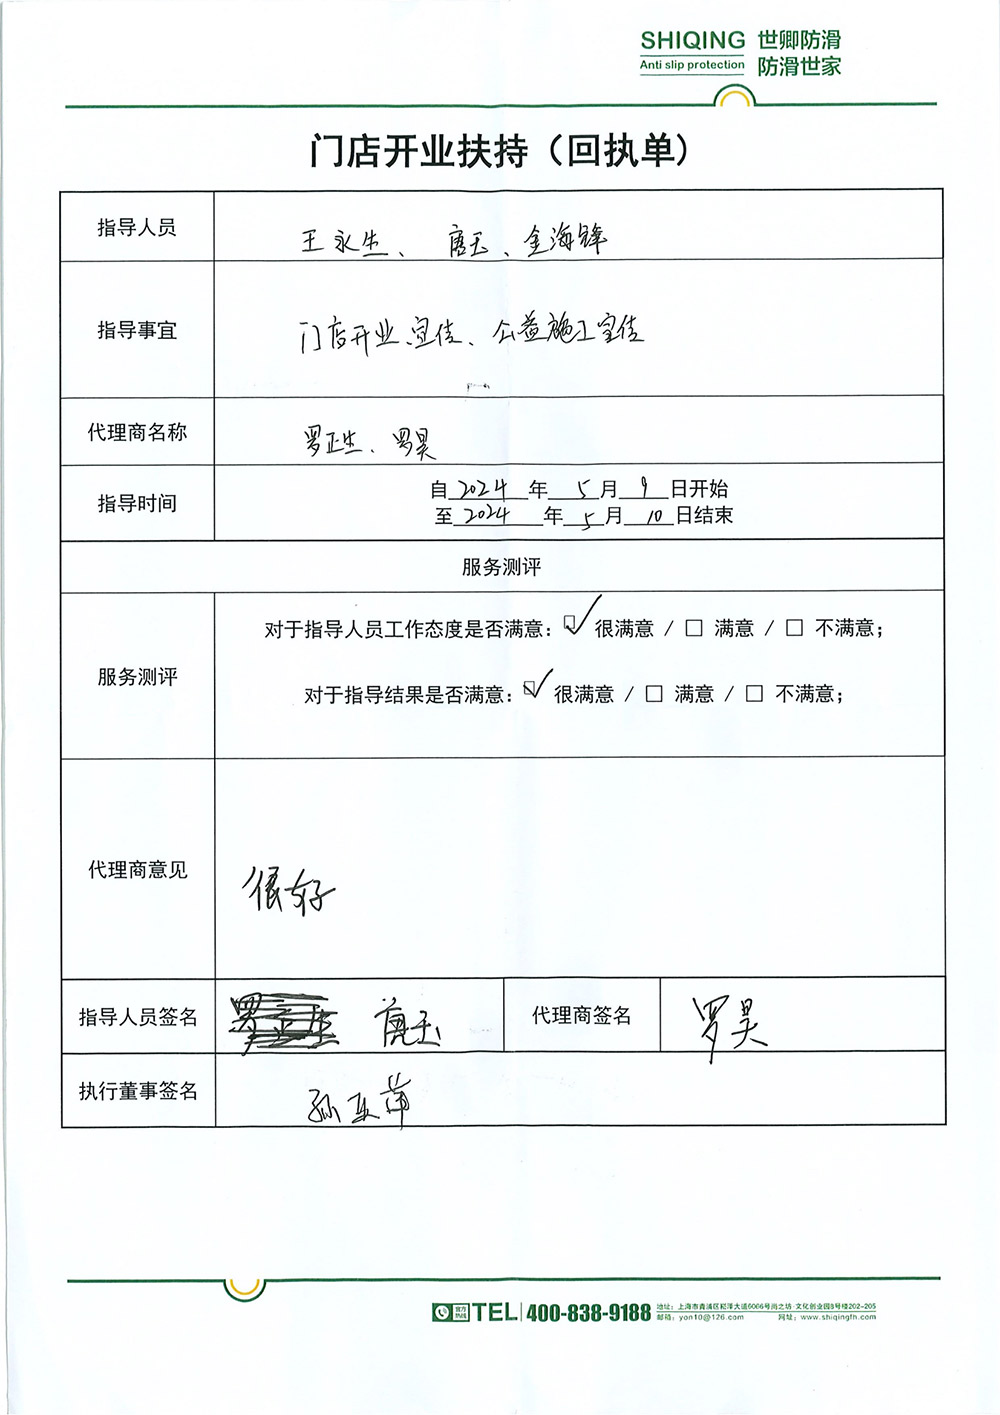 SHIQING 世卿防滑
Anti slip protection 防滑世家
门店开业扶持（回执单）
指导人员 王永生、唐玉、金海锋
指导事宜 门店开业宣传、公益施工宣传
代理商名称 罗正生、罗昊
指导时间 自2024年5月9日开始
至2024年5月10日结束
服务测评
对于指导人员工作态度是否满意：☑很满意 / □ 满意 / □ 不满意；
服务测评
对于指导结果是否满意：☑很满意 / □ 满意 / □ 不满意；
代理商意见 很好
指导人员签名 唐玉 代理商签名 罗昊
执行董事签名
官方热线 TEL 400-838-9188 地址：上海市青浦区崧泽大道6066号尚之坊·文化创业园8号楼202-205
邮箱：yon10@126.com 网址：www.shiqingfh.com